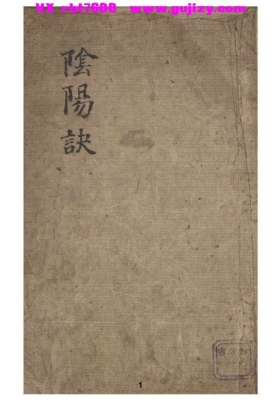 VX zbl7600 www.gujizy.com
陰陽訣
1